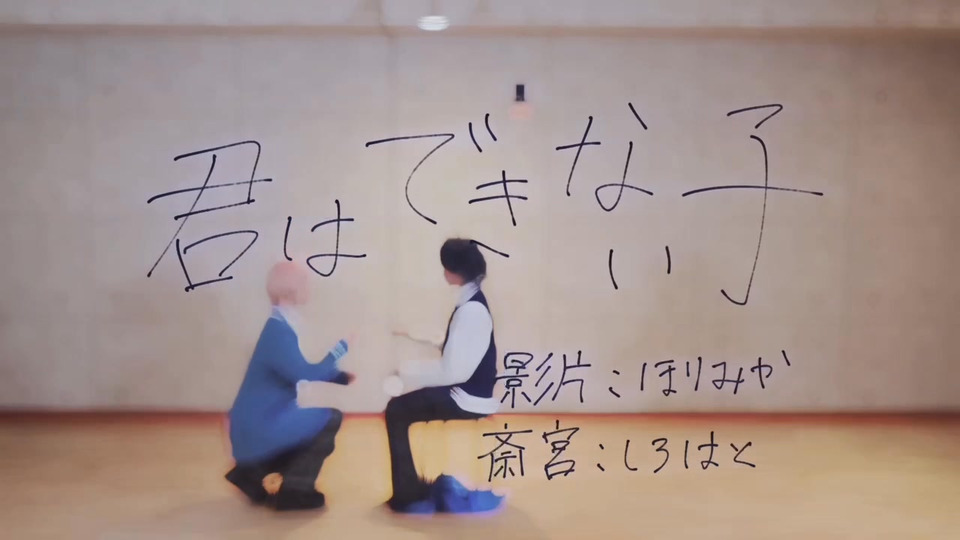 君はできない子
影片：ほりみか
斎宮：しろはと